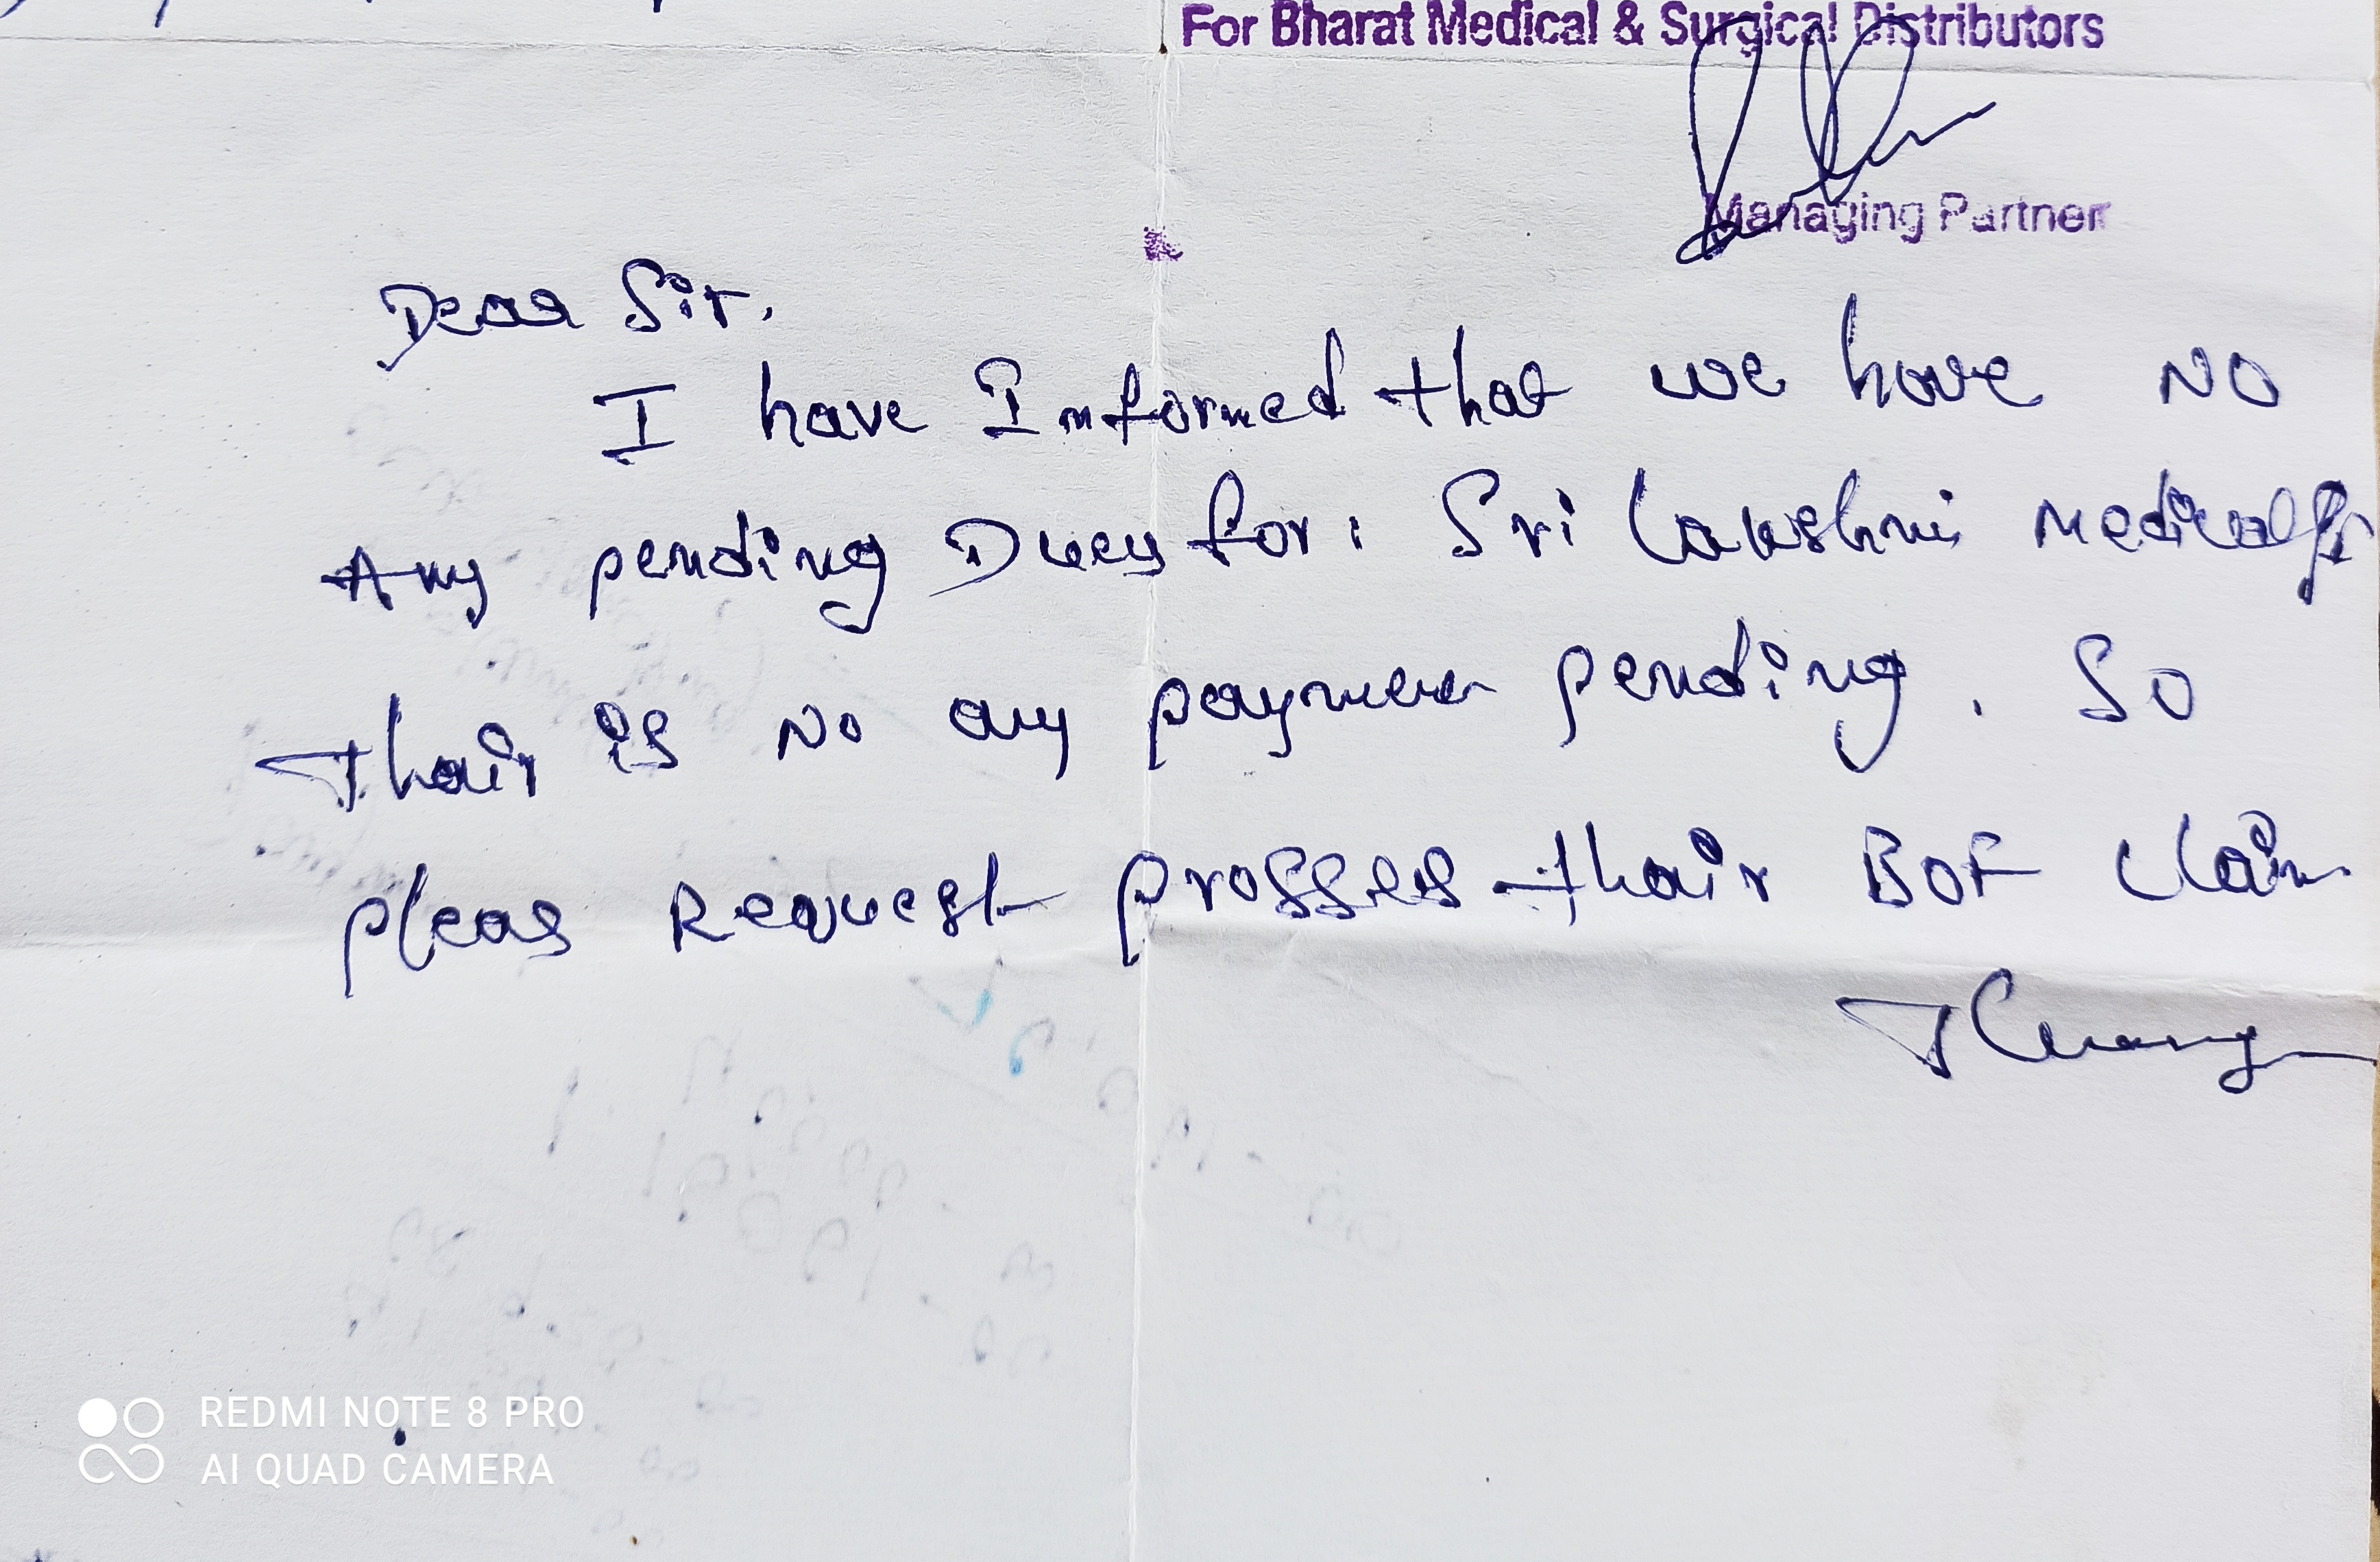 For Bharat Medical & Surgical Distributors
Managing Partner
Dear Sir,
I have Informed that we have NO
Any pending Dues for: Sri Lakshmi Medicals
thair is No any payment pending. So
pleas Request prosses thair BOF claim
REDMI NOTE 8 PRO
AI QUAD CAMERA